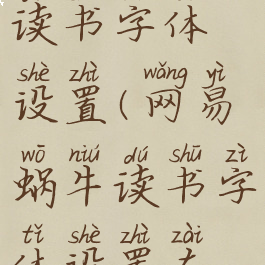 读书字体
shè zhì wǎng yì
设置(网易
wō niú dú shū zì
蜗牛读书字
tǐ shè zhì zài
体设置在